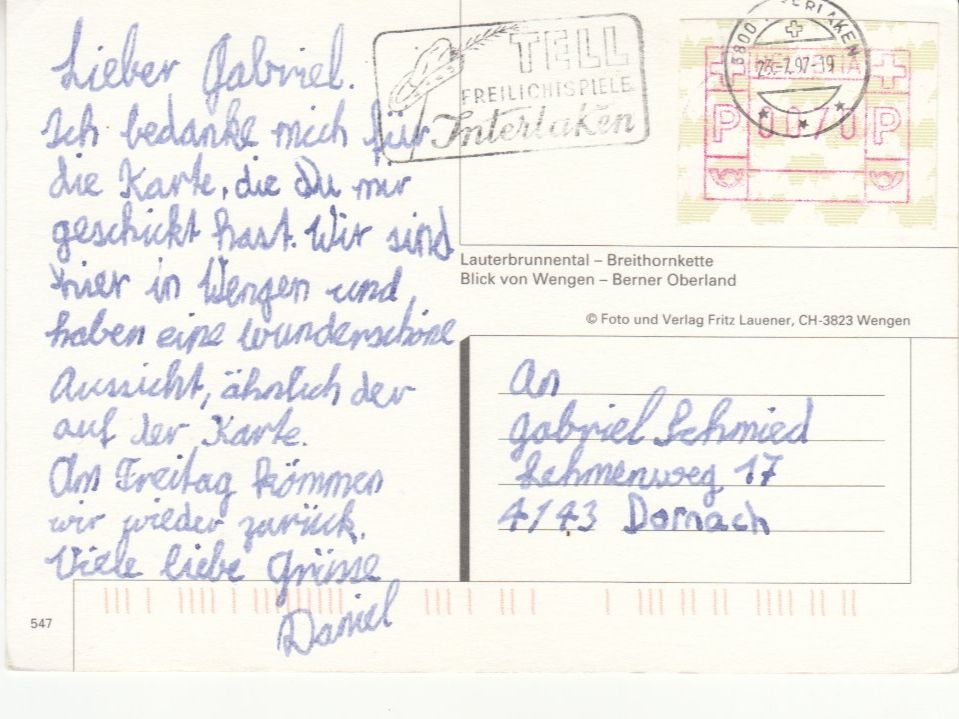 Lieber Gabriel.
Ich bedanke mich für
die Karte, die Du mir
geschickt hast. Wir sind
hier in Wengen und
haben eine wunderschöne
Aussicht, ähnlich der
auf der Karte.
Am Freitag kommen
wir wieder zurück.
Viele liebe Grüsse
Daniel
547
TELL
FREILICHTSPIELE
Interlaken
3800 INTERLAKEN
23.-7.97-19
HELVETIA
P 0070 P
Lauterbrunnental – Breithornkette
Blick von Wengen – Berner Oberland
© Foto und Verlag Fritz Lauener, CH-3823 Wengen
An
Gabriel Schmied
17
4143 Dornach